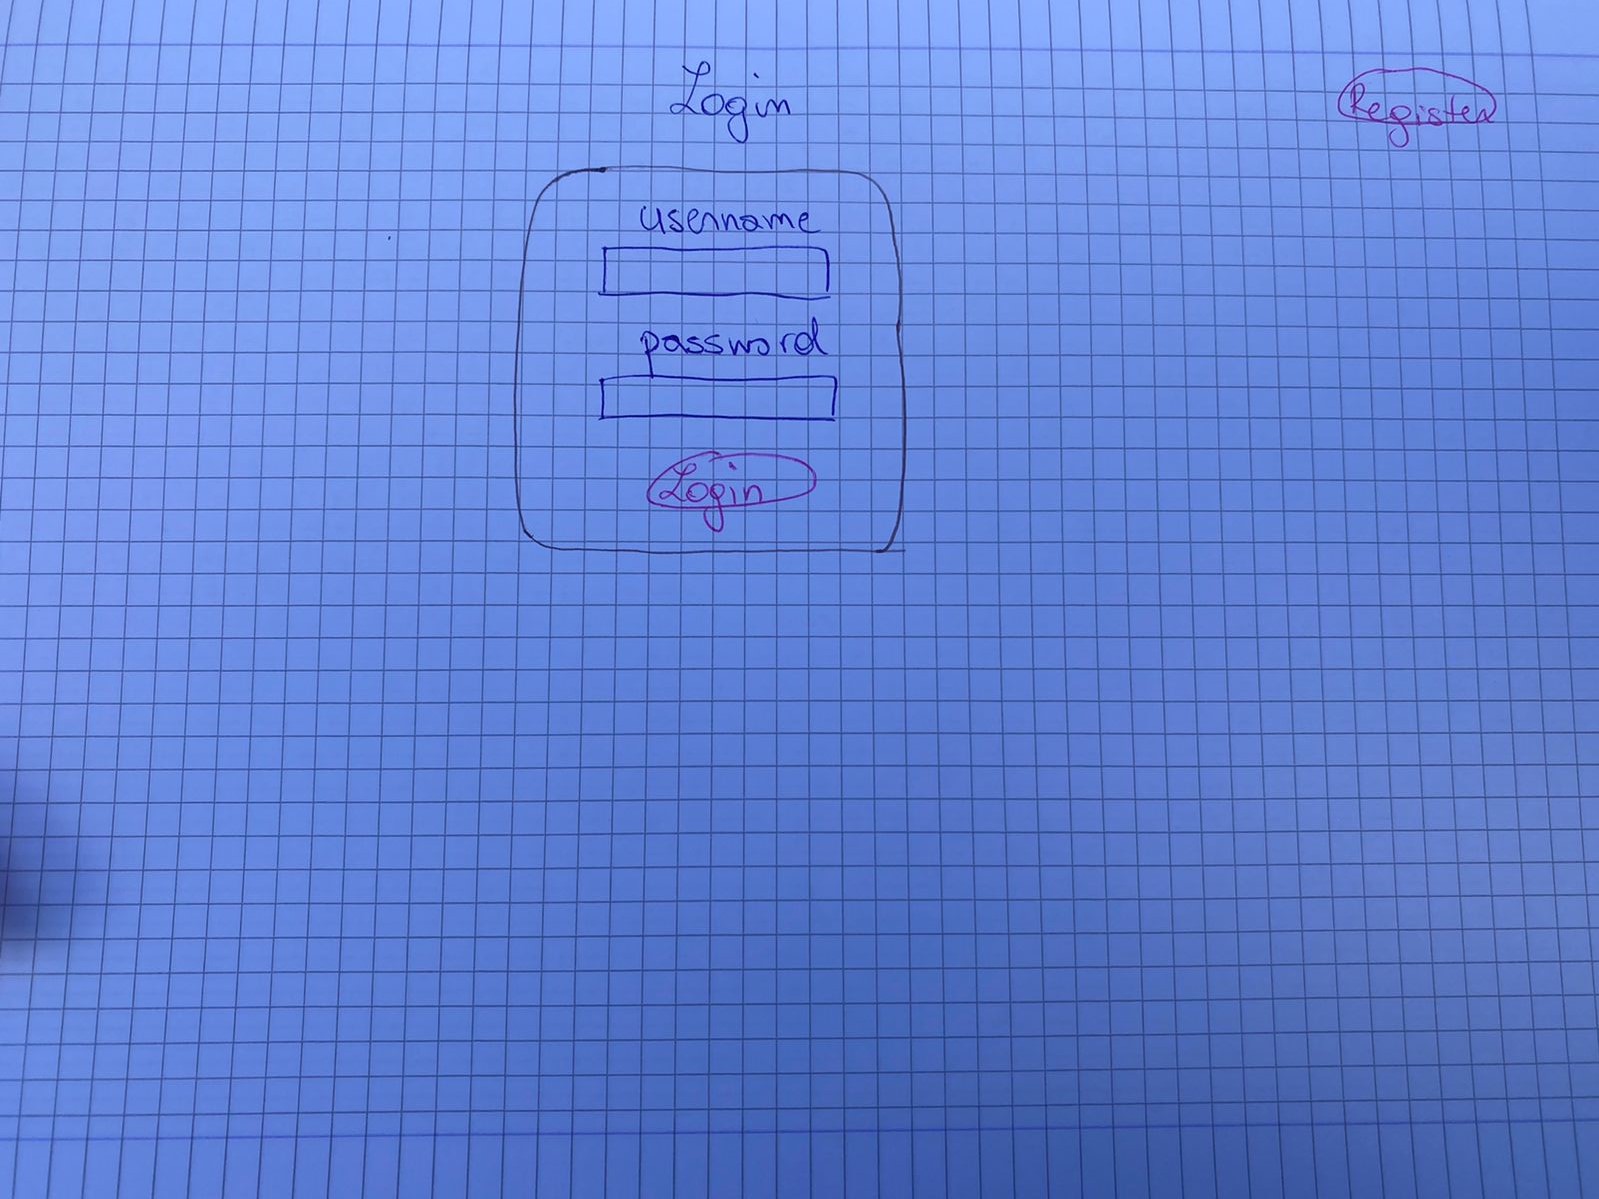 Login
Register
username
password
Login